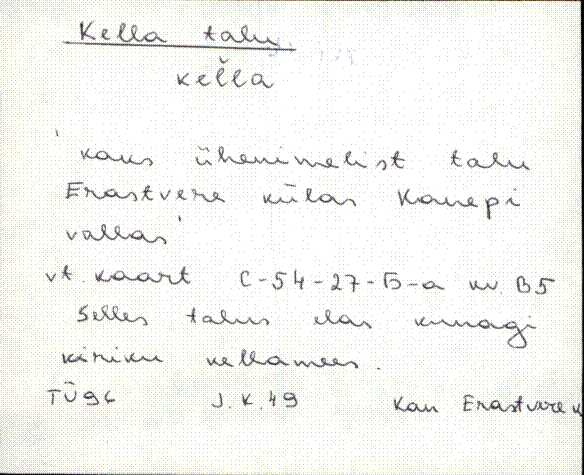 Kella talu
keľla
'kaks ühenimelist talu
Erastvere külas Kanepi
vallas'
vt. kaart C-54-27-Б-а kv. B5
Selles talus elas kunagi
kiriku kellamees.
TÜ96 J.K.49 Kan Erastvere k